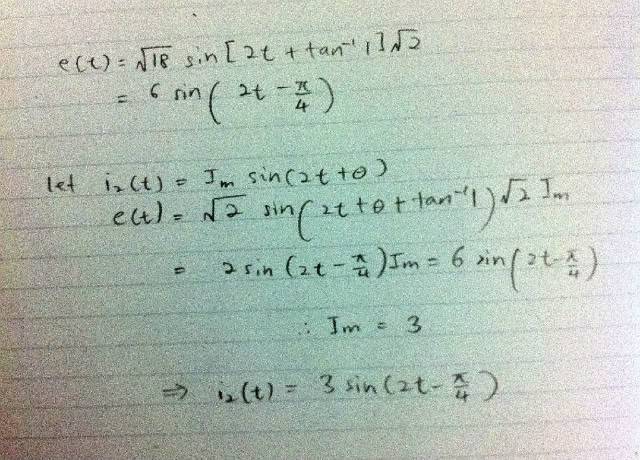 e(t) = √18 sin [2t + tan⁻¹ 1] √2
= 6 sin ( 2t - π/4 )
let i₂(t) = Im sin(2t+θ)
e(t) = √2 sin(2t+θ+tan⁻¹1) √2 Im
= 2 sin (2t - π/4) Im = 6 sin(2t-π/4)
∴ Im = 3
⇒ i₂(t) = 3 sin(2t - π/4)